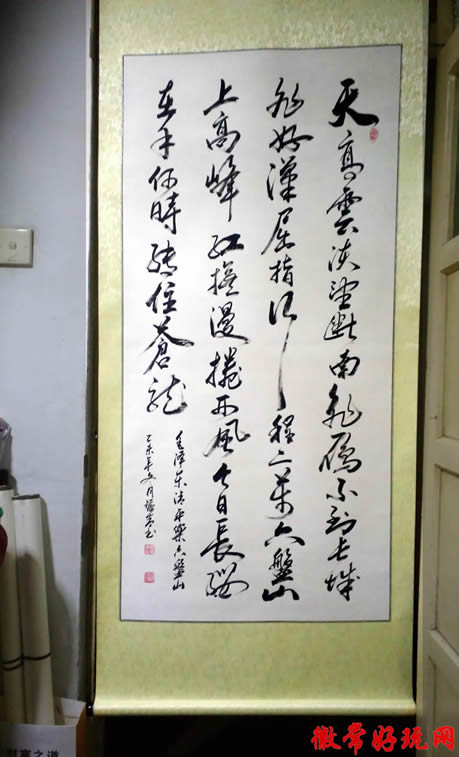 天高雲淡望斷南飛雁不到長城
非好漢屈指行程二萬六盤山
上高峰紅旗漫捲西風今日長纓
在手何時縛住蒼龍
毛澤東清平樂六盤山
乙未年月書
之道
徽常好玩网